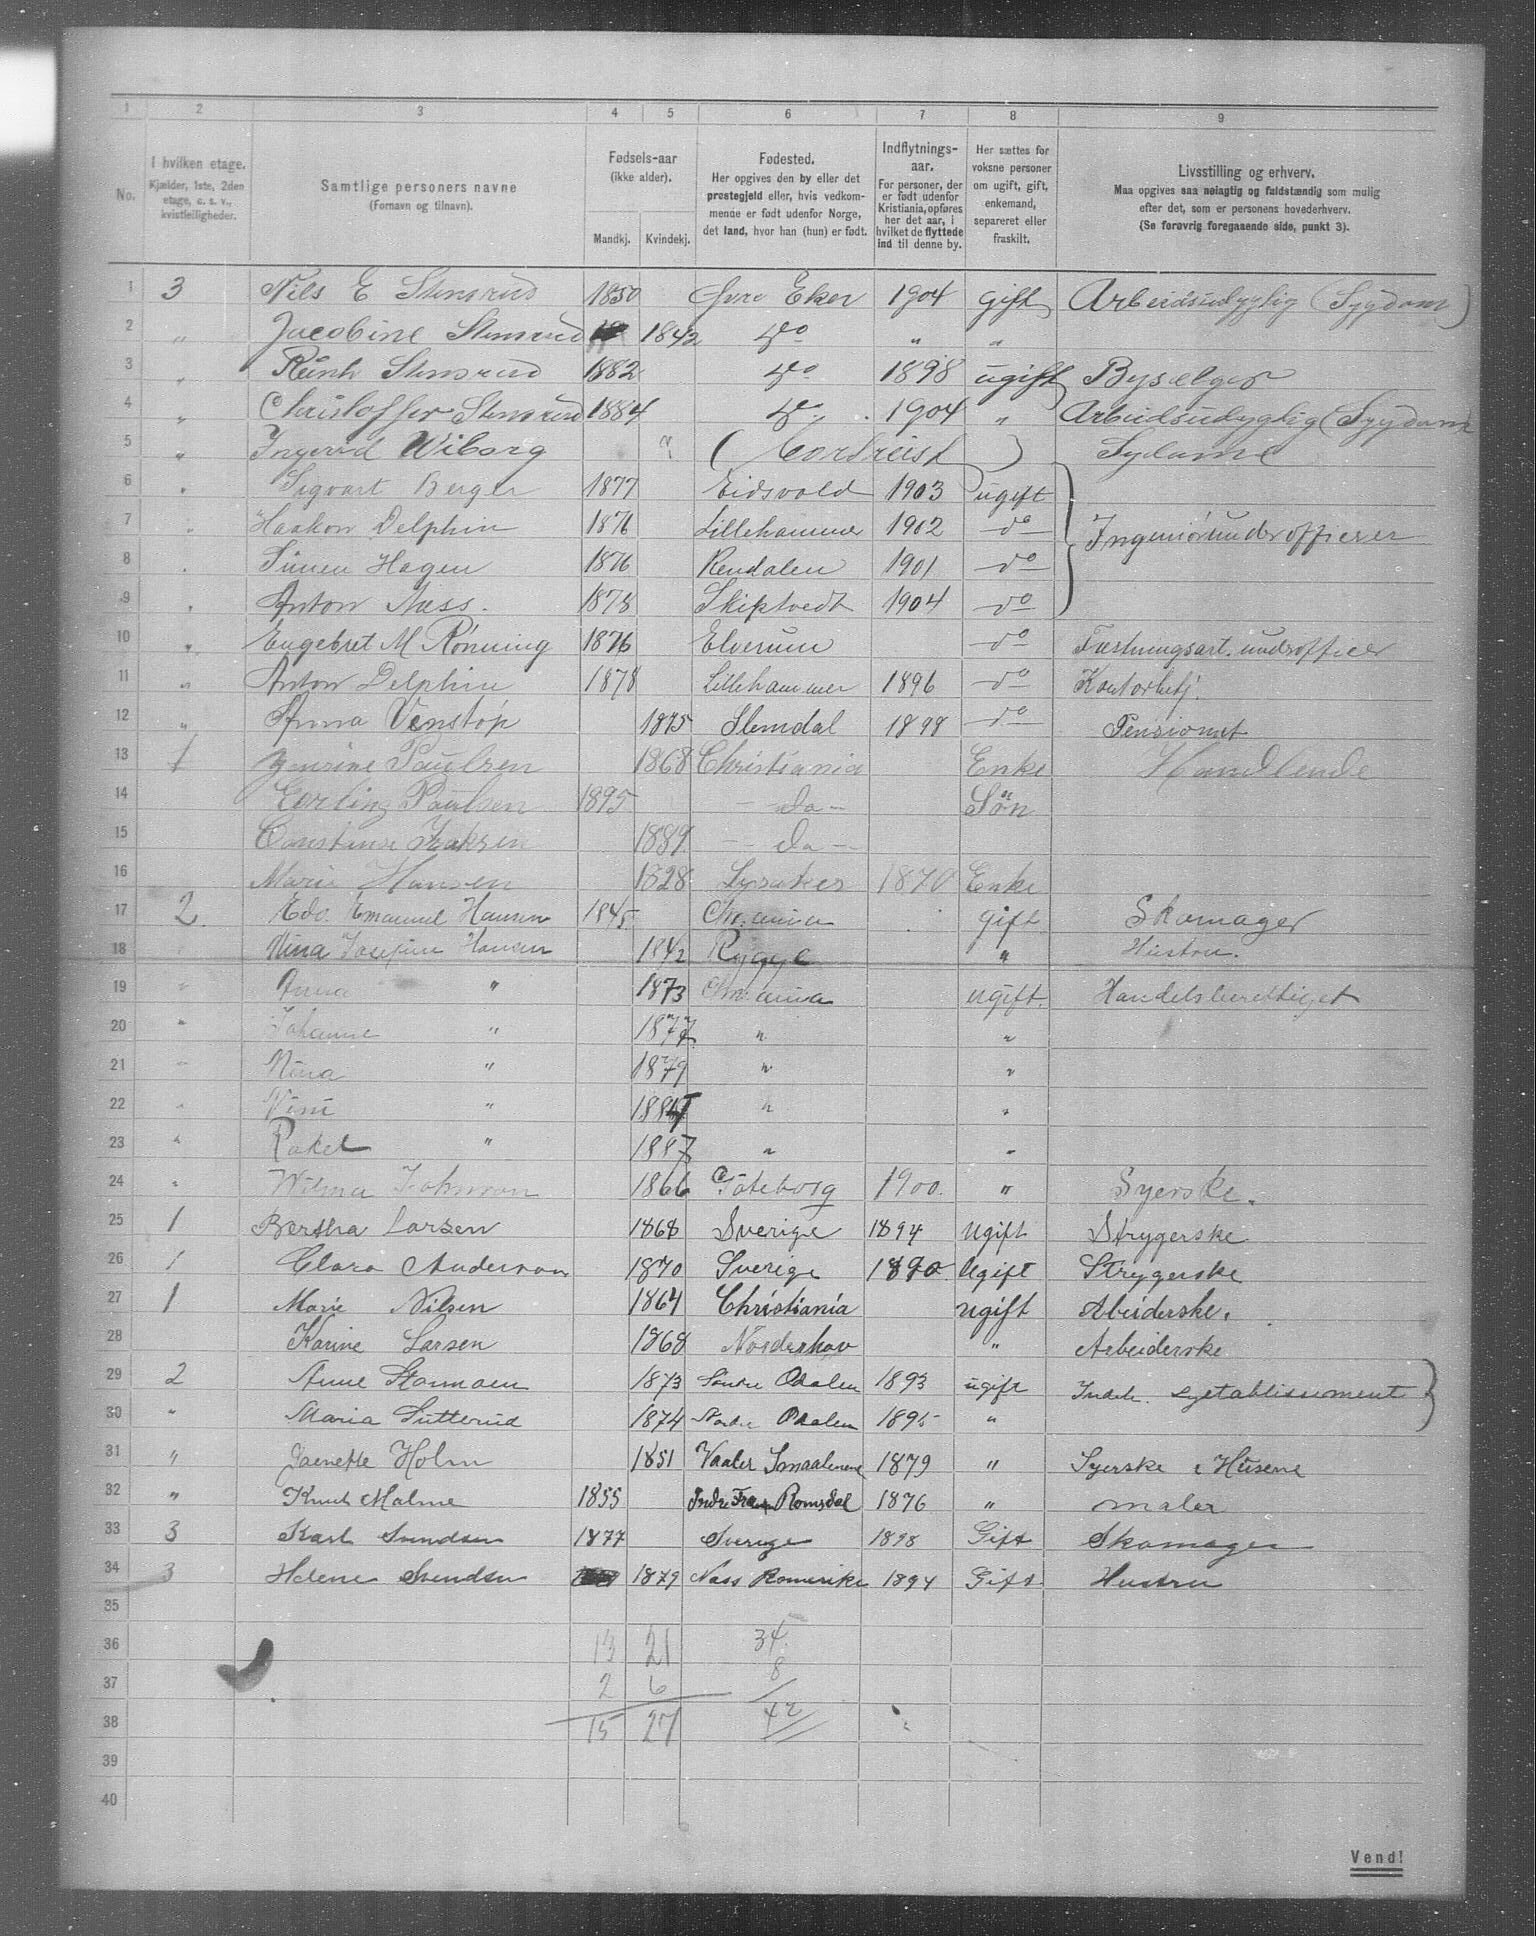 1 2 3 4 5 6 7 8 9
No.
I hvilken etage.
Kjælder, 1ste, 2den
etage, o. s. v.,
kvistleiligheder.
Samtlige personers navne
(Fornavn og tilnavn).
Fødsels-aar
(ikke alder).
Mandkj. Kvindekj.
Fødested.
Her opgives den by eller det
prestegjeld eller, hvis vedkom-
mende er født udenfor Norge,
det land, hvor han (hun) er født.
Indflytnings-
aar.
For personer, der
er født udenfor
Kristiania, opføres
her det aar, i
hvilket de flyttede
ind til denne by.
Her sættes for
voksne personer
om ugift, gift,
enkemand,
separeret eller
fraskilt.
Livsstilling og erhverv.
Maa opgives saa nøiagtig og fuldstændig som mulig
efter det, som er personens hovederhverv.
(Se forøvrig foregaaende side, punkt 3).
1 3 Nils E Stensrud 1850 Øvre Eker 1904 gift Arbeidsudygtig (Sygdom)
2 " Jacobine Stensrud 1842 Do " "
3 " Stensrud 1882 Do 1898 ugift Bysælger
4 " Christoffer Stensrud 1884 Do 1904 " Arbeidsudygtig (Sygdom
5 " Ingerid Wiborg " (Bortreist) Sydame
6 " Sigvart Berger 1877 Eidsvold 1903 ugift
7 " Haakon Delphin 1876 Lillehammer 1902 do Ingeniørunderofficerer
8 " Simen Hagen 1876 Rendalen 1901 do
9 " Anton Næss. 1878 Skiptvedt 1904 do
10 " Engebret M Rönning 1876 Elverum do Fæstningsart. underofficer
11 " Anton Delphin 1878 Lillehammer 1896 do Kontorbetj.
12 " Anna Venstöp 1875 Slemdal 1898 do Pensionat
13 1 Paulsen 1868 Christiania Enke Handlende
14 Erling Paulsen 1895 - do - Sön
15 Constanse Isaksen 1889 - do -
16 Marie Hansen 1828 Lysaker 1870 Enke
17 2 Edv. Emanuel Hansen 1845 Chr.ania gift Skomager
18 Nina Josefine Hansen 1842 Rygge " Hustru.
19 " Anna " 1873 Chr.ania ugift. Handelsberettiget
20 " Johanne " 1877 " "
21 " Nina " 1879 " "
22 " " " "
23 " Rakel " 1887 " "
24 " Wilma Johnson 1866 Göteborg 1900. " Syerske.
25 1 Bertha Larsen 1868 Sverige 1894 Ugift Strygerske
26 1 Clara Anderson 1870 Sverige 1890 Ugift Strygerske
27 1 Marie Nilsen 1864 Christiania ugift Abeiderske.
28 Karine Larsen 1868 Norderhov " Arbeiderske
29 2 Anne 1873 Söndre Odalen 1893 ugift Indeh. syetablissement
30 " Maria Sutterud 1874 Nordre Odalen 1895 "
31 " Jaenette Holm 1851 Vaaler Smaalenene 1879 " Syerske i Husene
32 " Knut Malme 1855 Indre Romsdal 1876 " maler
33 3 Karl Svendsen 1877 Sverige 1898 Gift Skomager
34 3 Helene Svendsen 1879 Næss Romerike 1894 Gift Hustru
35
36 13 21 34
37 2 6 8
38 15 27 42
39
40
Vend!